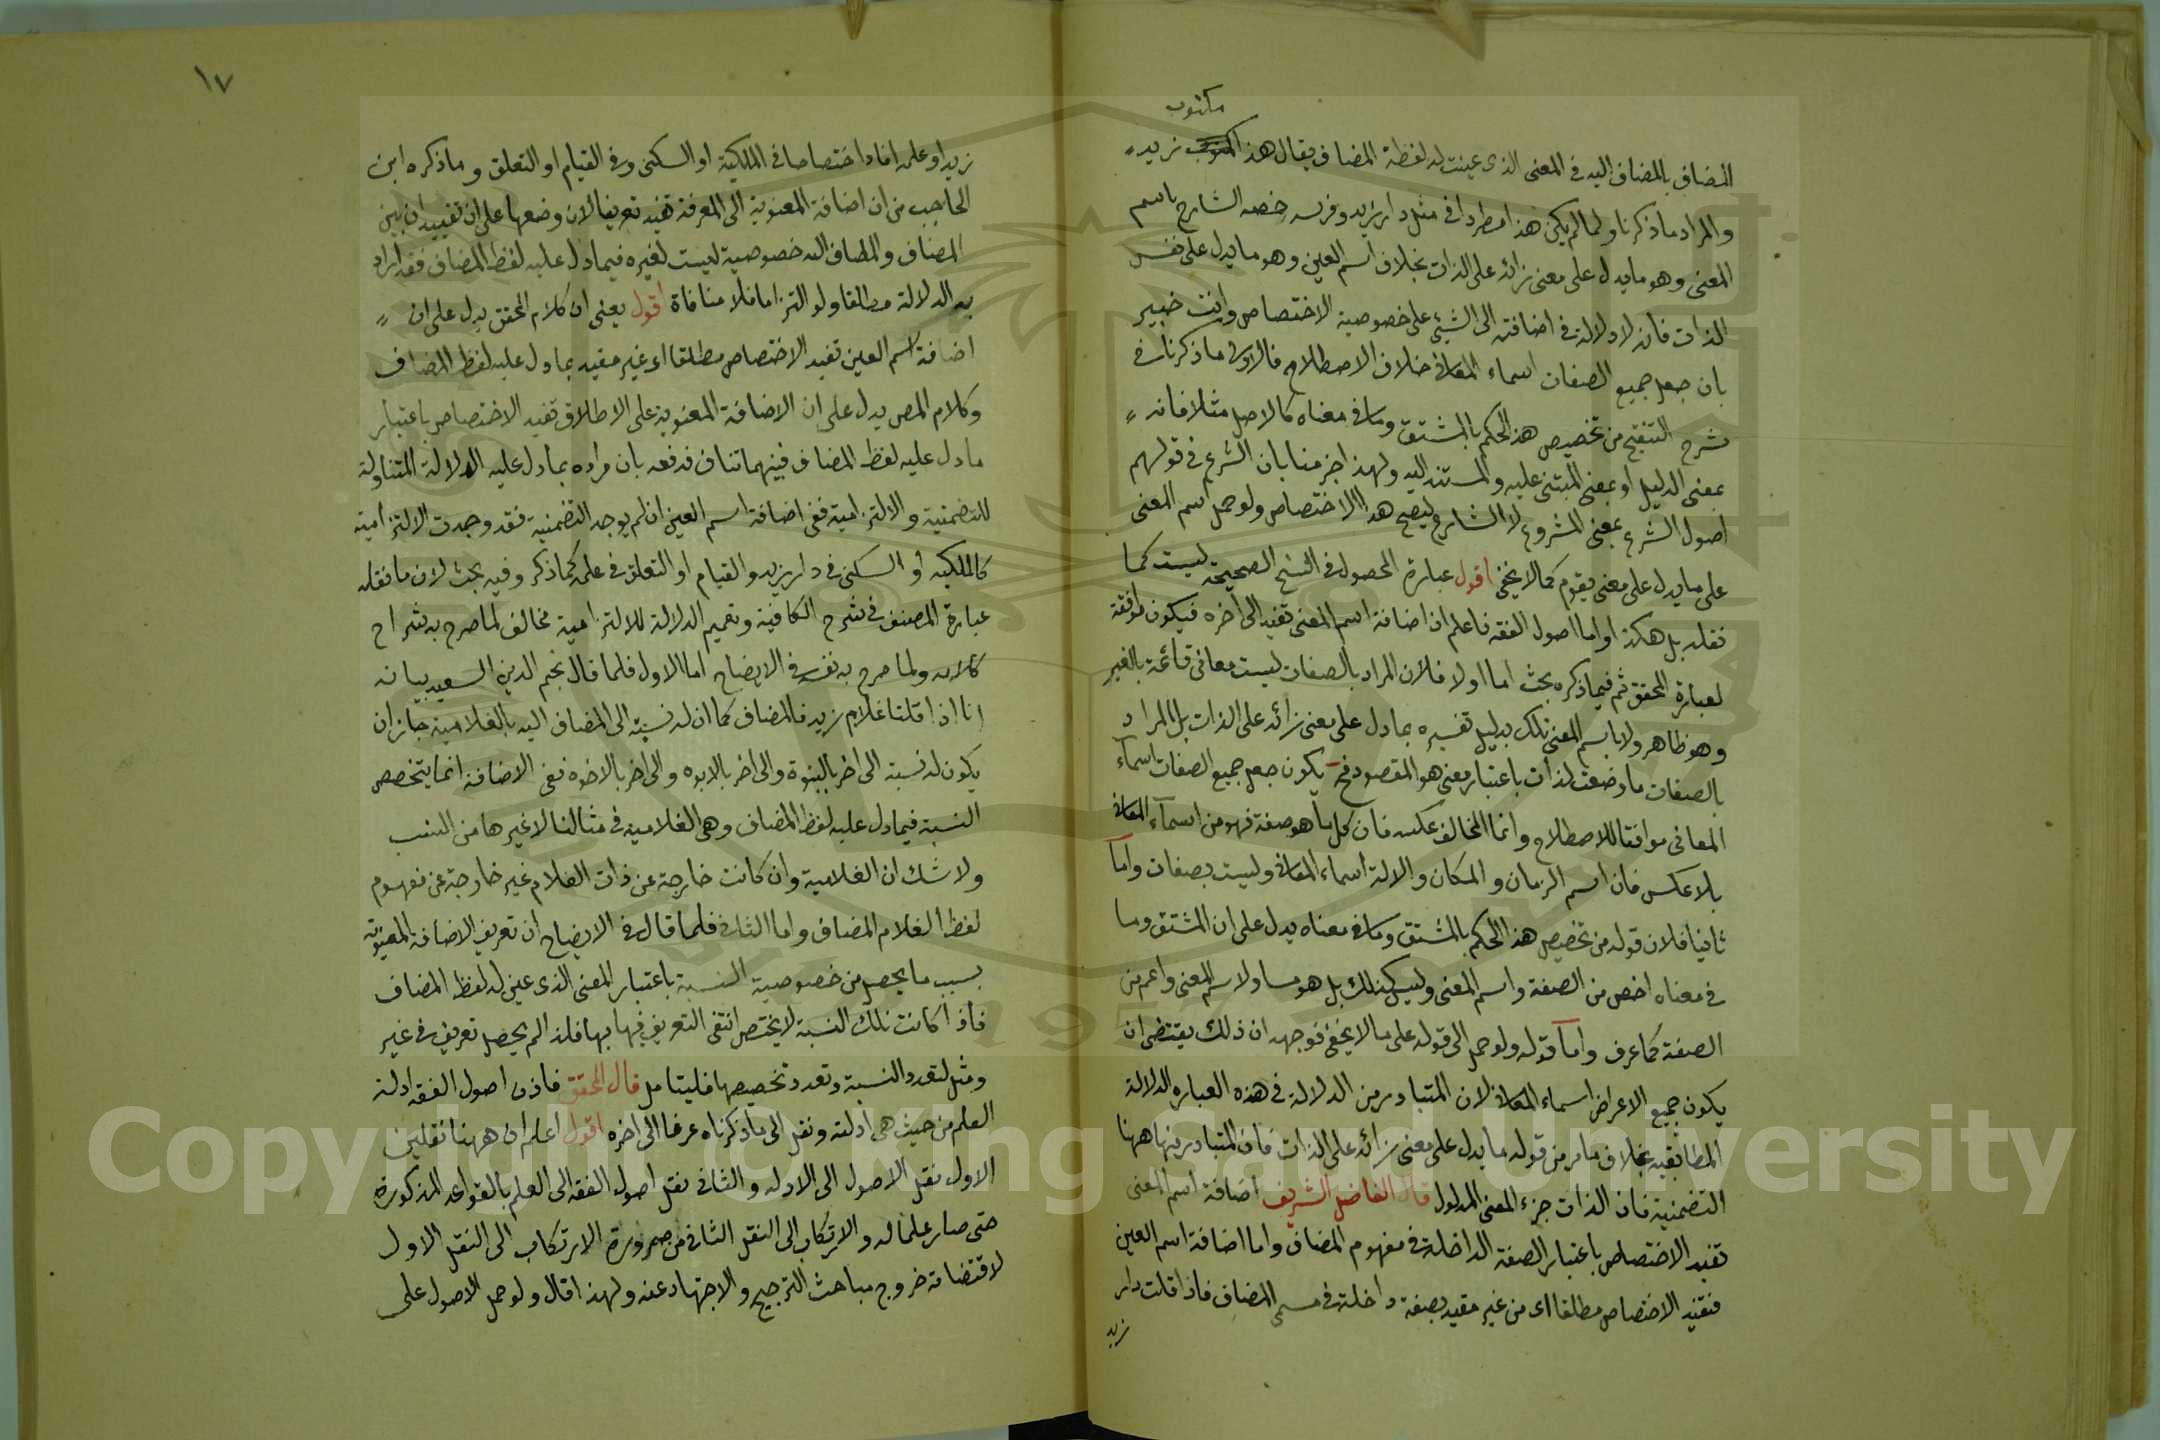 مكتوب
المضاف بالمضاف اليه في المعنى الذى عينت له لفظة المضاف يقال هذا المكتوب زيد
والمراد ما ذكرنا ولما لم يكن هذا مطردا في مثل دار زيد وفرسه خصه الشارح باسم
المعنى وهو ما يدل على معنى زائد على الذات بخلاف اسم العين وهو ما يدل على نفس
الذات فانه لا دلالة في اضافته الى الشئ على خصوصية الاختصاص وانت خبير
بان جعل جميع الصفات اسماء المعانى خلاف الاصطلاح فالاولى ما ذكرنا في
شرح التنقيح من تخصيص هذا الحكم بالمشتق وما في معناه كالاصل مثلا فانه
بمعنى الدليل او بمعنى المبتنى عليه والمستند اليه ولهذا اجزمنا بان الشرع في قولهم
اصول الشرع بمعنى المشروع لا الشارع ليصح هذا الاختصاص ولو حمل اسم المعنى
على ما يدل على معنى يقوم كما لا يخفى اقول عبارة المحصول في النسخ الصحيحة ليست كما
نقله بل هكذا واما اصول الفقه فاعلم ان اضافة اسم المعنى تفيد الى اخره فيكون موافقة
لعبارة المحقق ثم فيما ذكره بحث اما اولا فلان المراد بالصفات ليست معانى قائمة بالغير
وهو ظاهر ولا باسم المعنى تلك بدليل تفسيره بما دل على معنى زائد على الذات بل المراد
بالصفات ما وضعت لذات باعتبار معنى هو المقصود فح يكون جعل جميع الصفات اسماء
المعانى موافقا للاصطلاح وانما المخالف عكسه فان كل ما هو صفة فهو من اسماء المعانى
بلا عكس فان اسم الزمان والمكان والالة اسماء المعانى وليست بصفات واما
ثانيا فلان قوله من تخصيص هذا الحكم بالمشتق وما في معناه يدل على ان المشتق وما
في معناه اخص من الصفة واسم المعنى وليس كذلك بل هو مساو لاسم المعنى واعم من
الصفة كما عرف واما قوله ولو حمل الى قوله على ما لا يخفى فوجهه ان ذلك يقتضى ان
يكون جميع الاعراض اسماء المعانى لان المتبادر من الدلالة في هذه العباره الدلالة
المطابقية بخلاف ما مر من قوله ما يدل على معنى زائد على الذات فان المتبادر منها ههنا
التضمنية فان الذات جزء المعنى المدلول قال الفاضل الشريف اضافة اسم المعنى
تفيد الاختصاص باعتبار الصفة الداخلة في مفهوم المضاف واما اضافة اسم العين
فتفيد الاختصاص مطلقا اى من غير مقيد بصفة داخلة في مسمى المضاف فاذا قلت دار
زيد
١٧
زيد او علمه افاد اختصاصا في الملكية او السكنى وفي القيام او التعلق وما ذكره ابن
الحاجب من ان اضافة المعنوية الى المعرفة تفيد تعريفا لان وضعها على ان تفيد ان بين
المضاف والمضاف اليه خصوصية ليست لغيره فيما دل عليه لفظ المضاف فقد اراد
به الدلالة مطلقا ولو التزاما فلا منافاة اقول يعنى ان كلام المحقق يدل على ان
اضافة اسم العين تفيد الاختصاص مطلقا اى غير مقيد بما دل عليه لفظ المضاف
وكلام المص يدل على ان الاضافة المعنوية على الاطلاق تفيد الاختصاص باعتبار
ما دل عليه لفظ المضاف فبينهما تناف فدفعه بان مراده بما دل عليه الدلالة المتناولة
للتضمنية والالتزامية ففى اضافة اسم العين ان لم يوجد التضمنية فقد وجدت الالتزامية
كالملكية او السكنى في دار زيد والقيام او التعلق في علمه كما ذكر وفيه بحث لان ما نقله
عبارة المصنف في شرح الكافية وتعميم الدلالة للالتزامية مخالف لما صرح به شراح
كلامه ولما صرح به نفسه في الايضاح اما الاول فلما قال نجم الدين السعيد بيانه
انا اذا قلنا غلام زيد فالمضاف كما ان له نسبة الى المضاف اليه بالغلامية جاز ان
يكون له نسبة الى اخر بالبنوة والى اخر بالابوه والى اخر بالاخوه ففى الاضافة انما يتخصص
النسبة فيما دل عليه لفظ المضاف وهى الغلامية في مثالنا لا غيرها من النسب
ولا شك ان الغلامية وان كانت خارجة عن ذات الغلام غير خارجة عن مفهوم
لفظ الغلام المضاف واما الثانى فلما قال في الايضاح ان تعريف الاضافة المعنوية
بسبب ما يحصل من خصوصية النسبة باعتبار المعنى الذى عين له لفظ المضاف
فاذا كانت تلك النسبة لا يختص انتفى التعريف فيها بها فلذا لم يحصل تعريف في غير
ومثل لتعدد النسبة وتعدد تخصيصها فليتامل قال المحقق فاذن اصول الفقه ادلة
العلم من حيث هى ادلته ونقل الى ما ذكرناه عرفا الى اخره اقول اعلم ان ههنا نقلين
الاول نقل الاصول الى الادله والثانى نقل اصول الفقه الى العلم بالقواعد المذكورة
حتى صار علما له والارتكاب الى النقل الثانى من ضرورة الارتكاب الى النقل الاول
لاقتضائه خروج مباحث الترجيح والاجتهاد عنه ولهذا قال ولو حمل الاصول على
Copyright © King Saud University